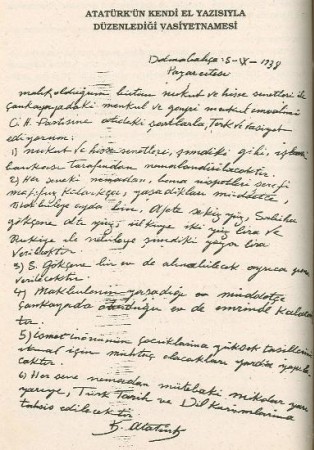 ATATÜRK'ÜN KENDİ EL YAZISIYLA
DÜZENLEDİĞİ VASİYETNAMESİ
Dolmabahçe: 5-IX-1938
Pazartesi
malik olduğum bütün nukut ve hisse senetleri ile
Çankayadaki menkul ve gayri menkul emvalimi
C. H. Partisine atideki şartlarla, terk ve vasiyet
ediyorum:
1) nukut ve hisse senetleri, şimdiki gibi, iş
bankası tarafından nemalandırılacaktır.
2) Her seneki nemadan, bana nispetleri şerefi
mahfuz kaldıkça, yaşadıkları müddetçe,
Makbuleye ayda bin, Afete sekiz yüz, Sabiha
Gökçene altı yüz, Ülküye iki yüz lira ve
Rukiye ile Nebileye şimdiki yüzer lira
verilecektir.
3) S. Gökçene bir ev de alınabilecek ayrıca para
verilecektir.
4) Makbulenin yaşadığı müddetçe
Çankayada oturduğu ev de emrinde kalacak-
tır.
5) İsmet İnönünün çocuklarına yüksek tahsillerini
ikmal için muhtaç olacakları yardım yapıla-
caktır.
6) Her sene nemadan mütebaki miktar yarı
yarıya, Türk Tarih ve Dil Kurumlarına
tahsis edilecektir.
K. Atatürk